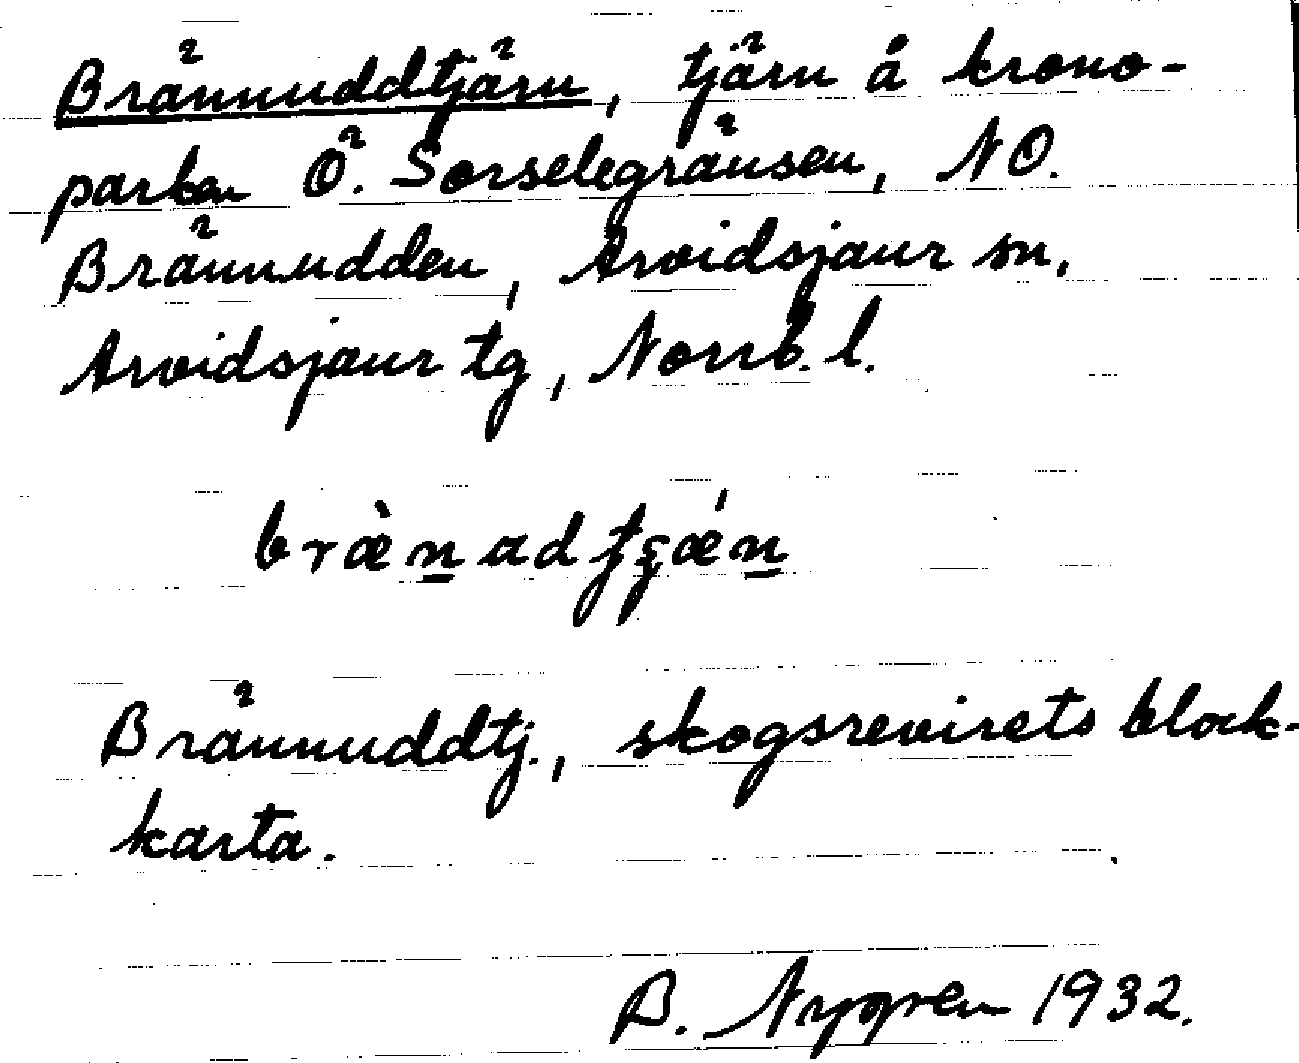 Brännuddtjärn, tjärn å krono-
parken Ö. Sorselegränsen, NO.
Brännudden, Arvidsjaur sn,
Arvidsjaur tg, Norrb. l.
bræ̀n̲adtʃǽn̲
Brännuddtj., skogsrevirets block-
karta.
B. Nygren 1932.